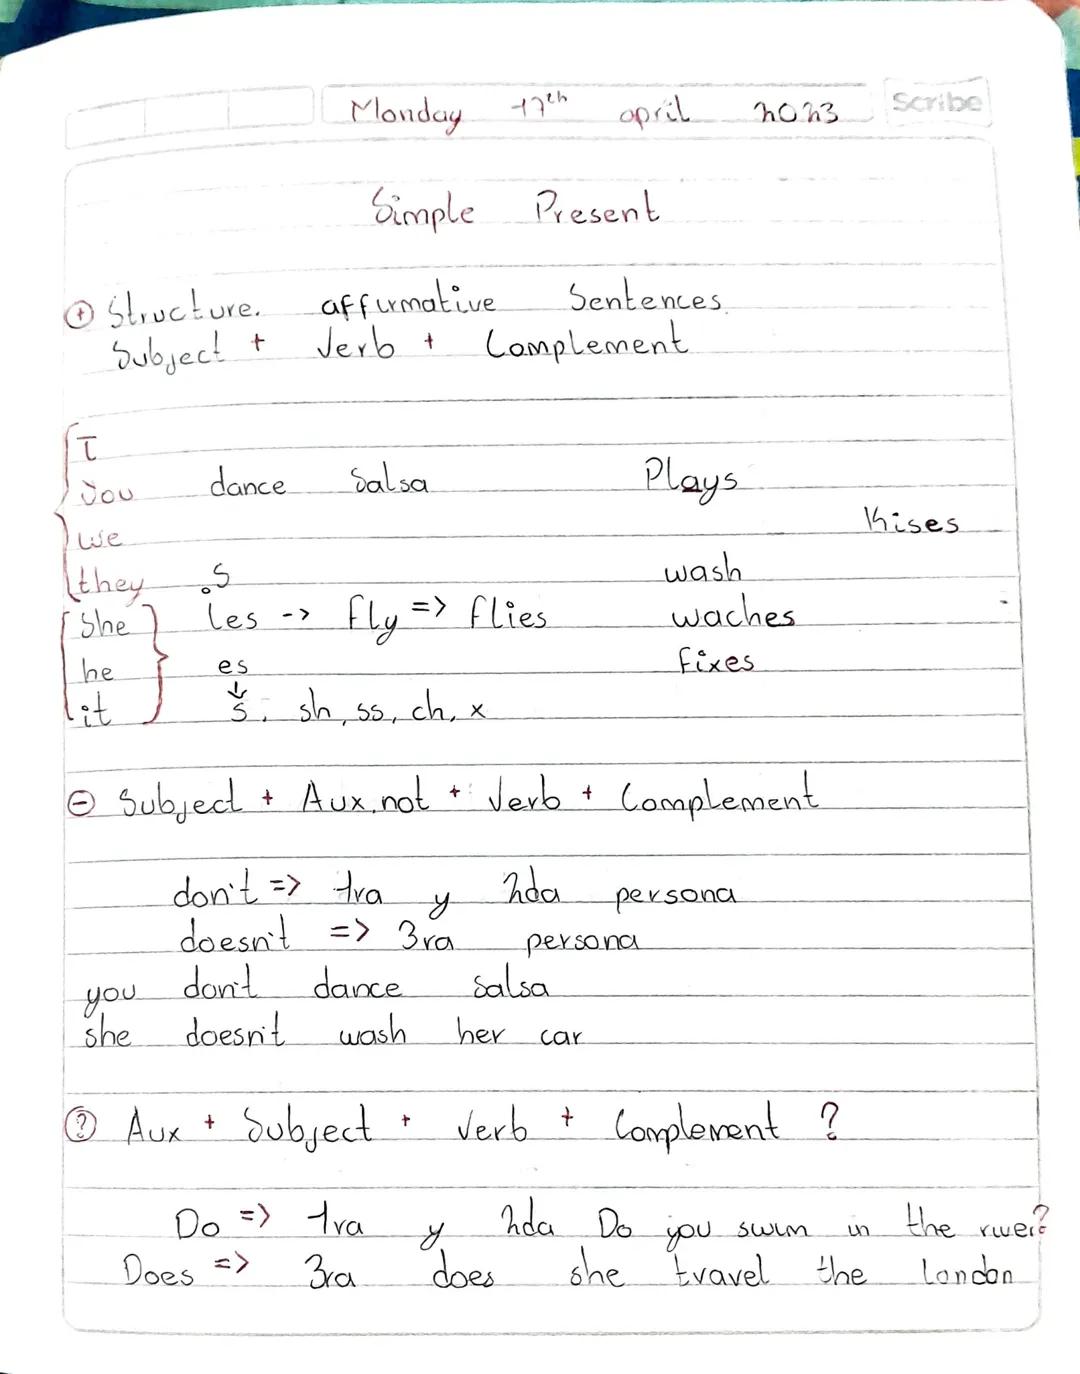 Monday 17th april 2023 Scribe
Simple Present
+ Structure. affirmative Sentences.
Subject + Verb + Complement
I
you dance Salsa Plays
we Kises
they .s wash
She ies -> fly => flies waches
he es fixes
it ↓ s, sh, ss, ch, x
- Subject + Aux. not + Verb + Complement
don't => 1ra y 2da persona
doesn't => 3ra persona
you don't dance salsa
she doesn't wash her car
? Aux + Subject + Verb + Complement ?
Do => 1ra y 2da Do you swim in the river?
Does => 3ra does she travel the London